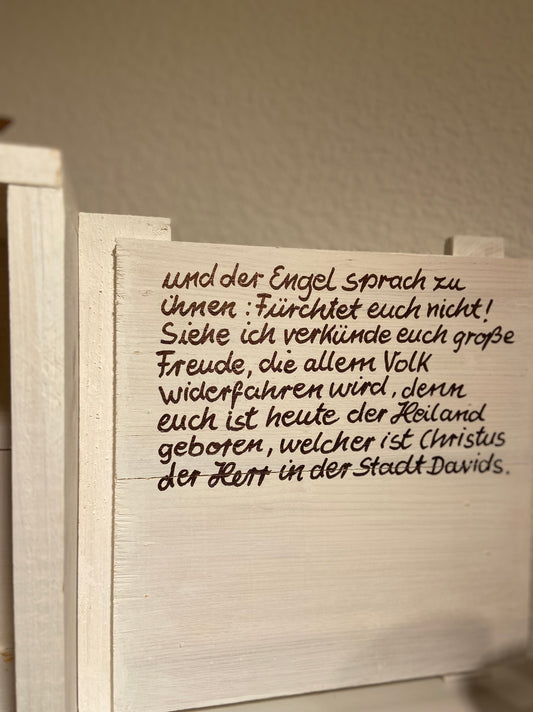 und der Engel sprach zu
ihnen : Fürchtet euch nicht!
Siehe ich verkünde euch große
Freude, die allem Volk
widerfahren wird, denn
euch ist heute der Heiland
geboren, welcher ist Christus
der Herr in der Stadt Davids.